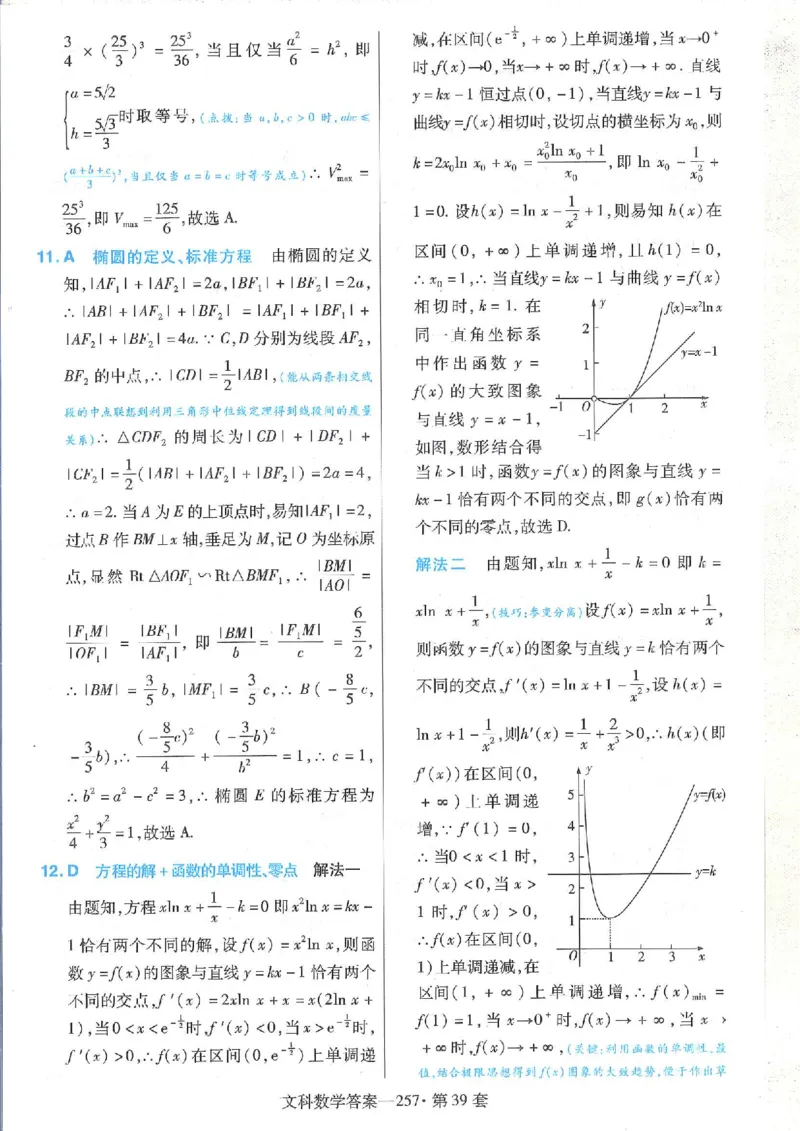 3/4 × (25/3)³ = 25³/36, 当且仅当 a²/6 = h², 即
{a=5√2
h=5√3/3 时取等号,(点拨:当 a,b,c>0 时,abc≤
((a+b+c)/3)³,当且仅当 a=b=c 时等号成立)∴ V²max =
25³/36,即 Vmax = 125/6,故选 A.
11. A 椭圆的定义、标准方程 由椭圆的定义
知,|AF₁|+|AF₂|=2a,|BF₁|+|BF₂|=2a,
∴ |AB|+|AF₂|+|BF₂| = |AF₁|+|BF₁|+
|AF₂|+|BF₂|=4a.∵ C,D 分别为线段 AF₂,
BF₂ 的中点,∴ |CD|=1/2|AB|,(能从两条相交线
段的中点联想到利用三角形中位线定理得到线段间的度量
关系)∴ △CDF₂ 的周长为|CD|+|DF₂|+
|CF₂|=1/2(|AB|+|AF₂|+|BF₂|)=2a=4,
∴ a=2. 当 A 为 E 的上顶点时,易知|AF₁|=2,
过点 B 作 BM⊥x 轴,垂足为 M,记 O 为坐标原
点,显然 Rt △AOF₁∽Rt△BMF₁,∴ |BM|/|AO| =
|F₁M|/|OF₁| = |BF₁|/|AF₁|, 即 |BM|/b = |F₁M|/c = (6/5)/2,
∴ |BM|=3/5 b,|MF₁|=3/5 c,∴ B(-8/5 c,
-3/5 b),∴ (-8/5 c)²/4 + (-3/5 b)²/b² =1,∴ c=1,
∴ b²=a²-c²=3,∴ 椭圆 E 的标准方程为
x²/4+y²/3=1,故选 A.
12. D 方程的解+函数的单调性、零点 解法一
由题知,方程 xln x+1/x-k=0 即 x²ln x=kx-
1 恰有两个不同的解,设 f(x)=x²ln x,则函
数 y=f(x)的图象与直线 y=kx-1 恰有两个
不同的交点,f′(x)=2xln x+x=x(2ln x+
1),当 0<x<e^(-1/2)时,f′(x)<0,当 x>e^(-1/2)时,
f′(x)>0,∴ f(x)在区间(0,e^(-1/2))上单调递
减,在区间(e^(-1/2),+∞)上单调递增,当 x→0⁺
时,f(x)→0,当x→+∞时,f(x)→+∞. 直线
y=kx-1 恒过点(0,-1),当直线y=kx-1 与
曲线y=f(x)相切时,设切点的横坐标为 x₀,则
k=2x₀ln x₀+x₀=(x₀²ln x₀+1)/x₀,即 ln x₀-1/x₀²+
1=0. 设h(x)=ln x-1/x²+1,则易知 h(x)在
区间(0,+∞)上单调递增,且 h(1)=0,
∴ x₀=1,∴ 当直线y=kx-1 与曲线 y=f(x)
相切时,k=1. 在
同一直角坐标系
中作出函数 y =
f(x)的大致图象
与直线 y=x-1,
如图,数形结合得
y
f(x)=x²ln x
2
y=x-1
1
-1 O 1 2 x
-1
当 k>1 时,函数y=f(x)的图象与直线 y=
kx-1 恰有两个不同的交点,即 g(x)恰有两
个不同的零点,故选 D.
解法二 由题知,xln x+1/x-k=0 即 k=
xln x+1/x,(技巧:参变分离)设 f(x)=xln x+1/x,
则函数 y=f(x)的图象与直线 y=k 恰有两个
不同的交点,f′(x)=ln x+1-1/x²,设 h(x)=
ln x+1-1/x²,则h′(x)=1/x+2/x³>0,∴ h(x)(即
f′(x))在区间(0,
+∞)上单调递
增,∵ f′(1)=0,
∴ 当0<x<1 时,
f′(x)<0,当 x>
1 时,f′(x)>0,
∴ f(x)在区间(0,
1)上单调递减,在
y
5
y=f(x)
4
3
y=k
2
1
O 1 2 3 x
区间(1,+∞)上单调递增,∴ f(x)min =
f(1)=1,当 x→0⁺时,f(x)→+∞,当 x→
+∞时,f(x)→+∞,(关键:利用函数的单调性、最
值,结合极限思想得到 f(x)图象的大致趋势,便于作出草
文科数学答案—257·第 39 套